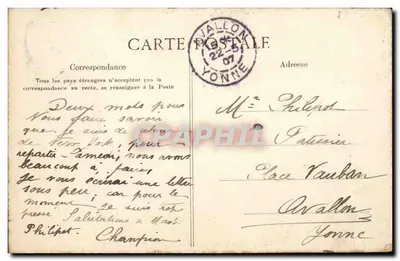 CARTE POSTALE
Correspondance
Tous les pays étrangers n'acceptent pas la
correspondance au recto, se renseigner à la Poste
Adresse
AVALLON
22-5
07
YONNE
Deux mots pour
vous faire savoir
que je suis de
de pour
repartir Samedi, nous avons
beaucoup à faire,
je vous écrirai une lettre
sous peu, car pour le
moment je suis
Salutations à Mme
Philipot. Champion
Mr Philipot
Patissier
Place Vauban
Avallon
Yonne
CPAPHIL